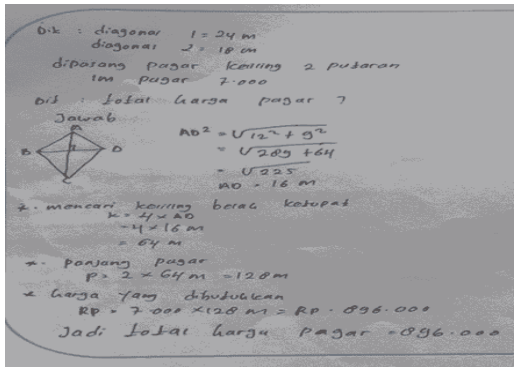 Dik : diagonal 1 = 24 m
diagonal 2 = 18 cm
dipasang pagar keliling 2 putaran
1m pagar 7.000
Dit : total harga pagar ?
Jawab
A
B
D
C
AD² = √12² + 9²
= √289 + 64
= √225
AD = 16 m
*. mencari keliling belah ketupat
k = 4 x AD
= 4 x 16 m
= 64 m
*. panjang pagar
P = 2 x 64 m = 128 m
* harga yang dibutuhkan
RP = 7.000 x 128 m = RP. 896.000
Jadi total harga pagar = 896.000